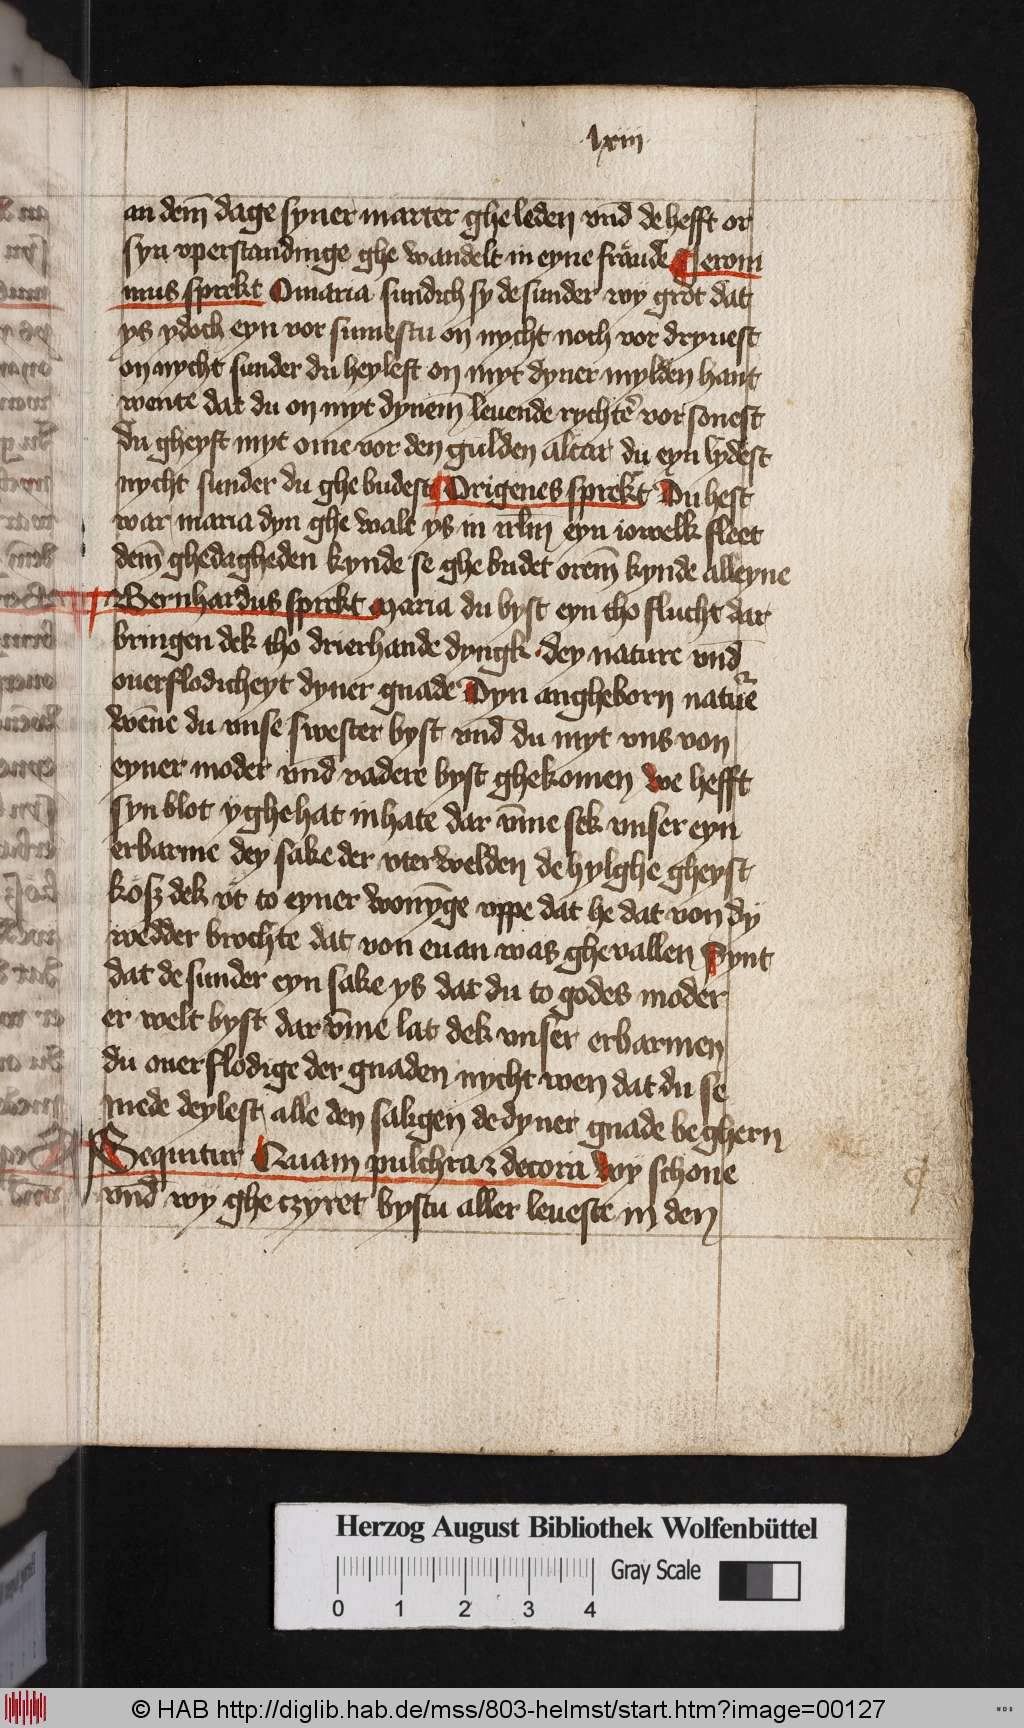 lxiii
an dem̄ dage syner marter ghe leden vnd̄ de hefft or
syn vperstandinge ghe wandelt in eyne fraude Jeroni
mus sprekt O maria sundich sy de sunder wy grot dat
ys ydoch eyn vor sumestu on nycht noch vor dryuest
on nycht sunder du heylest on myt dyner mylden hant
wente dat du on myt dynem̄ leuende rychter vor sonest
du gheyst myt ome vor den gulden altar du eyn lydest
nycht sunder du ghe budest Origenes sprekt Du hest
war maria dyn ghe walt ys in irlm̄ eyn iowelk fleet
dem̄ ghedagheden kynde se ghe budet orem̄ kynde alleyne
Bernhardus sprekt maria du byst eyn tho flucht dar
bringen dek tho drierhande dyngk dey nature vnd̄
ouerflodicheyt dyner gnade Dyn angheborn nature
wēne du vnse swester byst vnd̄ du myt vns von
eyner moder vnd̄ vadere byst ghekomen we hefft
syn blot y ghehat in hate dar vm̄e sek vnser eyn
erbarme dey sake der vterwelden de hylghe gheyst
kosz dek vt to eyner wonȳge vppe dat he dat von dy
wedder brochte dat von euan was ghevallen Synt
dat de sunder eyn sake ys dat du to godes moder
er welt byst dar vm̄e lat dek vnser erbarmen
du ouerflodige der gnaden nycht wen dat du se
mede deylest alle den sakgen de dyner gnade beghern
Sequitur Quam pulchra ⁊ decora wy schone
vnd̄ wy ghe czyret bystu aller leueste in den
Herzog August Bibliothek Wolfenbüttel
Gray Scale
0 1 2 3 4
© HAB http://diglib.hab.de/mss/803-helmst/start.htm?image=00127